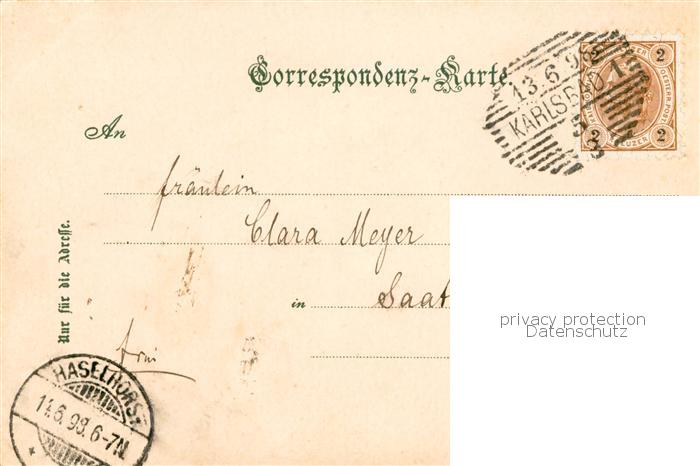 Correspondenz-Karte.
13.6.98
KARLSBAD 1
5
2 2
KREUZER
OESTERR. POST
2 2
An
Fräulein
Clara Meyer
in Saat
Nur für die Adresse.
HASELHORST
14.6.98.6-7N.
privacy protection
Datenschutz